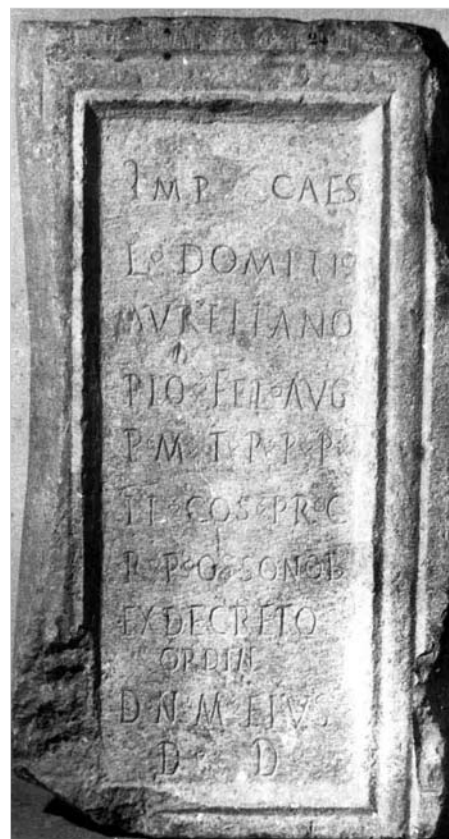 IMP CAES
L DOMITIO
AVRELIANO
PIO FEL AVG
P M T P P P
II COS PR C
R P OSSONOB
EX DECRETO
ORDIN
D N M EIVS
D D